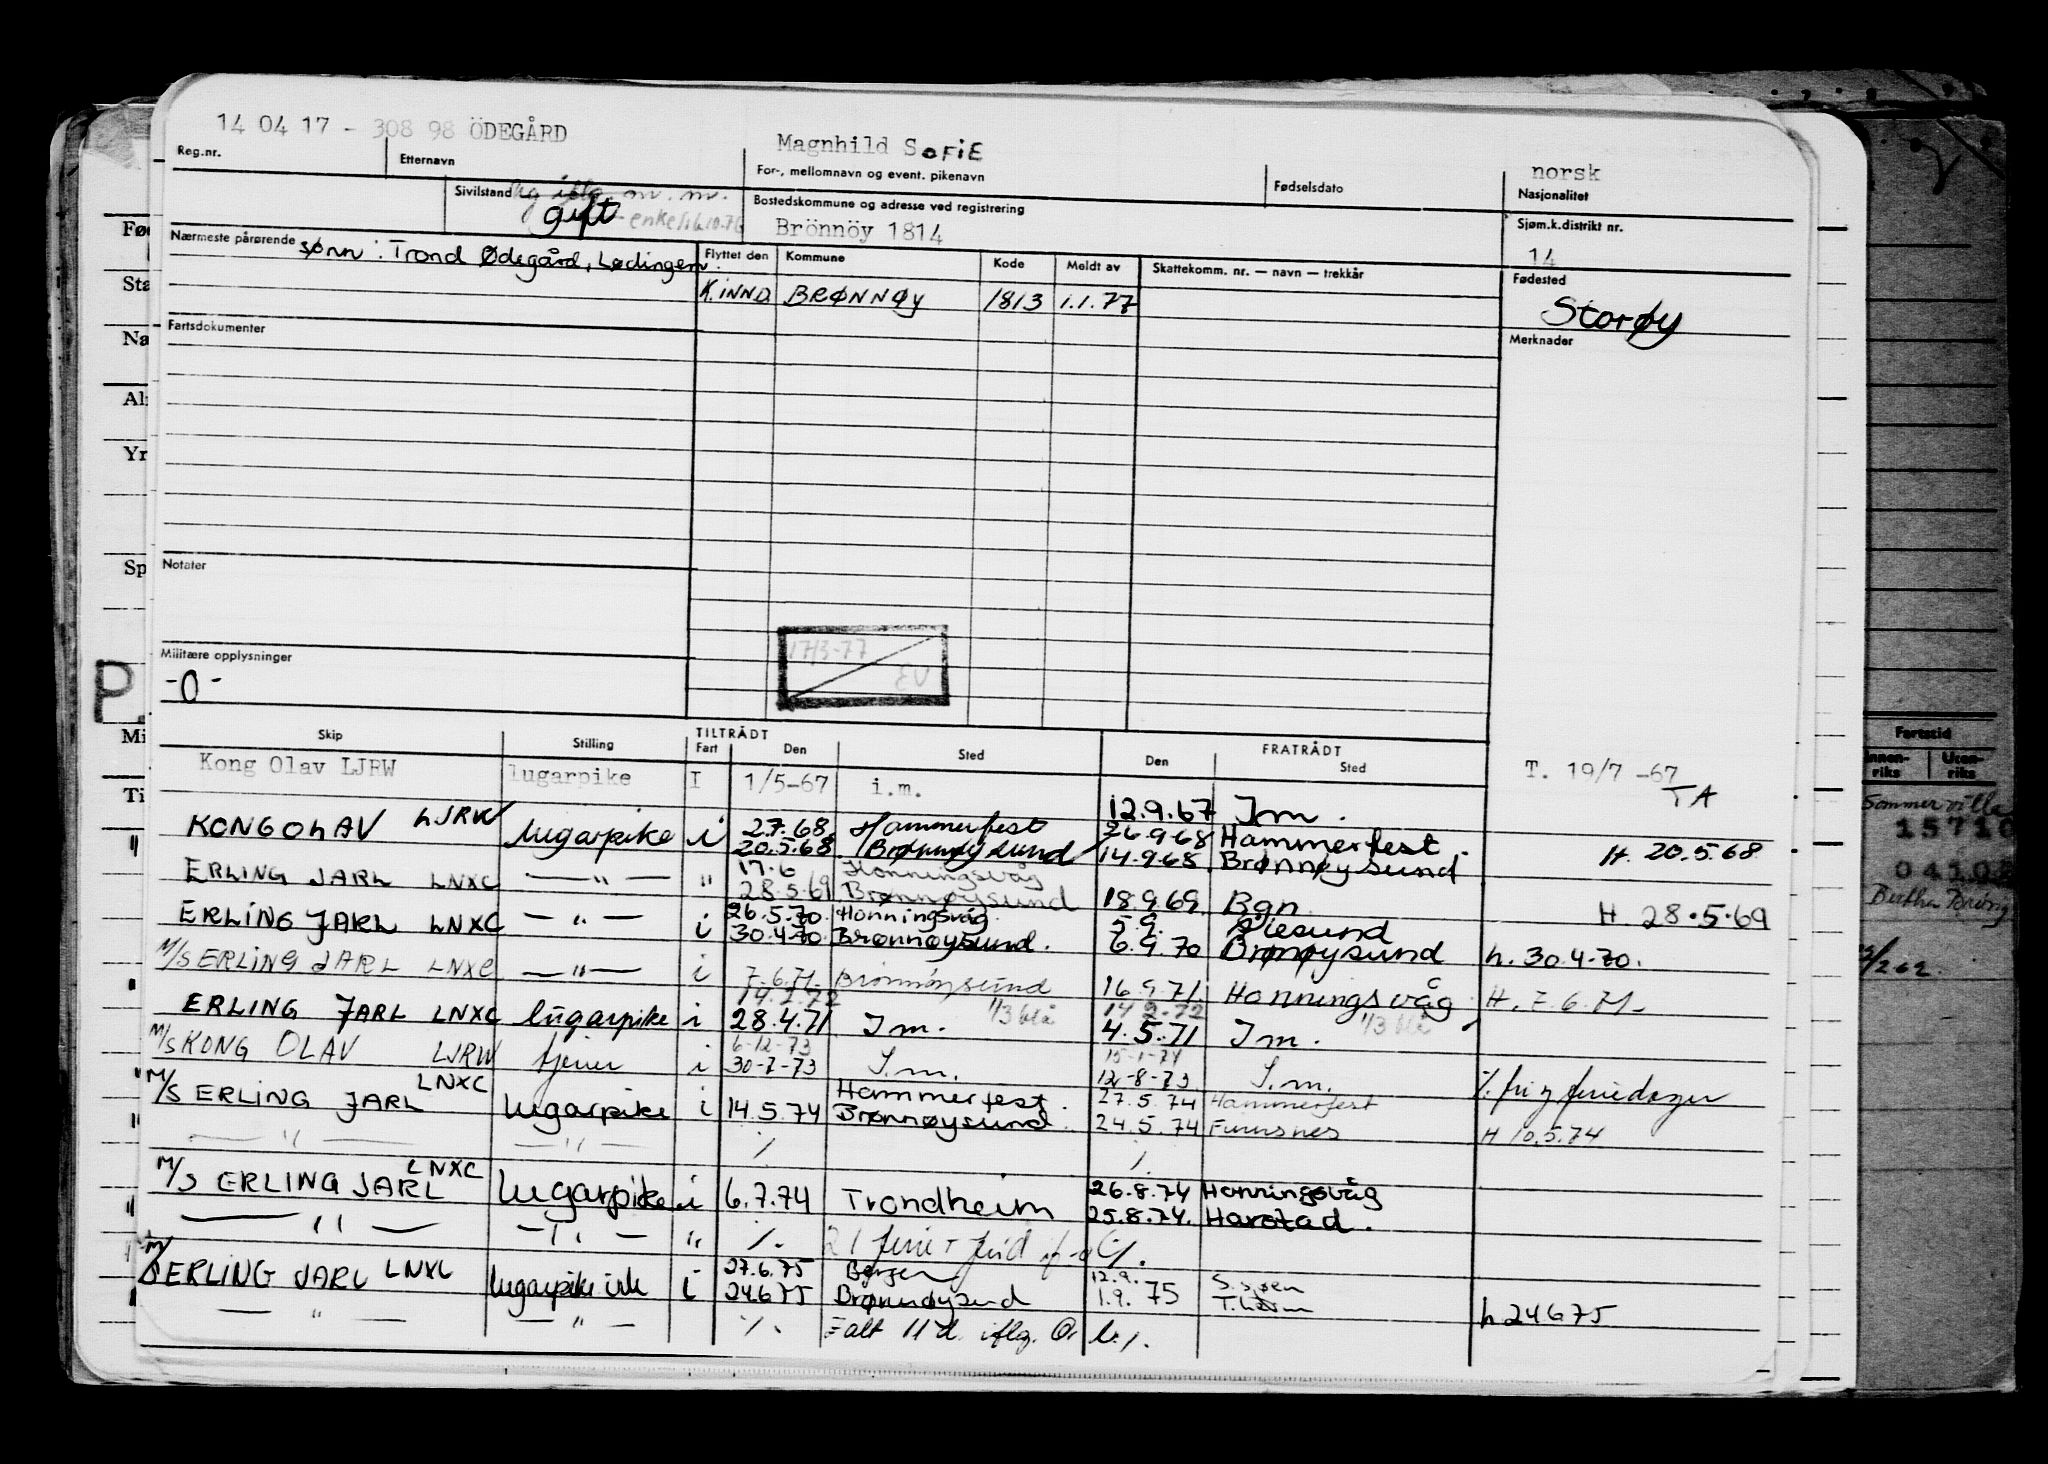 14 04 17 - 308 98 ÖDEGÅRD Magnhild SOFIE norsk
Reg.nr. Etternavn For-, mellomnavn og event. pikenavn Fødselsdato Nasjonalitet
Sivilstand gift enke/16.10.76 Bostedskommune og adresse ved registrering Sjøm.k.distrikt nr.
Brönnöy 1814 14
Nærmeste pårørende sønn: Trond Ødegård, Lødingen. Flyttet den Kommune Kode Meldt av Skattekomm. nr. — navn — trekkår Fødested
K.INND. BRØNNØY 1813 1.1.77 Storøy
Fartsdokumenter Merknader
Notater
17/3-77
EV
Militære opplysninger
-0-
Skip Stilling TILTRÅDT Fart Den Sted FRATRÅDT Den Sted
Kong Olav LJRW lugarpike I 1/5-67 i.m. 12.9.67 Im. T. 19/7 -67 TA
KONG OLAV LJRW lugarpike i 2.7.68 Hammerfest 26.9.68 Hammerfest.
20.5.68 Brønnøysund 14.9.68. Brønnøysund H. 20.5.68
ERLING JARL LNXC — " — " 17.6 Honningsvåg
28.5.69 Brønnøysund 18.9.69 Bgn H 28.5.69
ERLING JARL LNXC — " — i 26.5.70. Honningsvåg. 5.9. Ålesund
30.4.70. Brønnøysund. 6.9.70 Brønnøysund h. 30.4.70.
M/S ERLING JARL LNXC — " — i 7.6.71. Brønnøysund 16.9.71. Honningsvåg H. 7.6.71.
14.2.72 1/3 blå 14 2-72 1/3 blå
ERLING JARL LNXC lugarpike i 28.4.71 Im. 4.5.71 Im.
6-12-73 15-1-74
M/S KONG OLAV LJRW i 30-7-73 I.m. 12-8-73 I.m. % fri og feriedager
M/S ERLING JARL LNXC lugarpike i 14.5.74 Hammerfest. 27.5.74 Hammerfest
Brønnøysund. 24.5.74 H 10.5.74
— " — — " — %. %.
M/S ERLING JARL LNXC lugarpike i 6.7.74 Trondheim 26.8.74 Honningsvåg
25.8.74. Harstad.
— " — — " — " %. %.
M/S ERLING JARL LNXC lugarpike i 27.6.75 Bergen 12.9.
24.6 75 Brønnøysund 1.9. 75 T.heim h 24675
— " — — " — %. alt 11 d.
Fød
Sta
Na
Yr
Sp
P.
Mi
Ti
Fartstid
Uten-
riks
Sommervilla